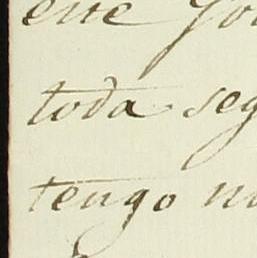 este Go
toda seg
tengo